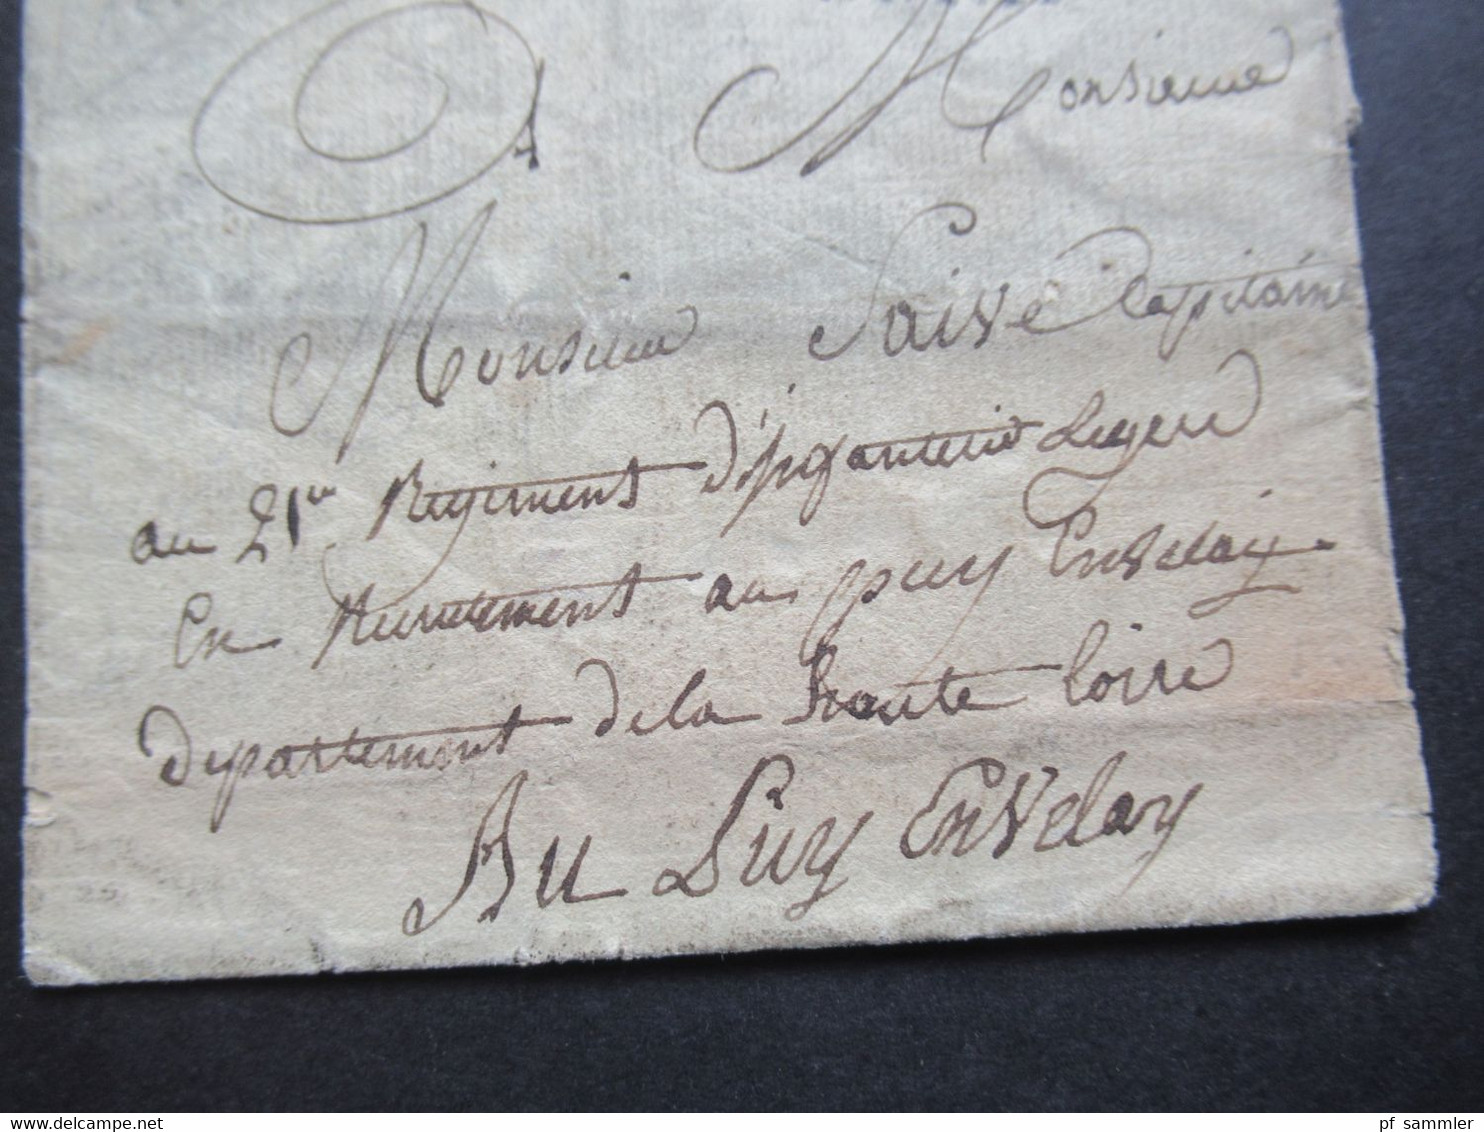 A Monsieur
Monsieur Saive Capitaine
au 21me Regiment d'infanterie Legere
En Recrutement au puy Envelay
Departement de la haute Loire
Au Puy Envelay
pf_sammler